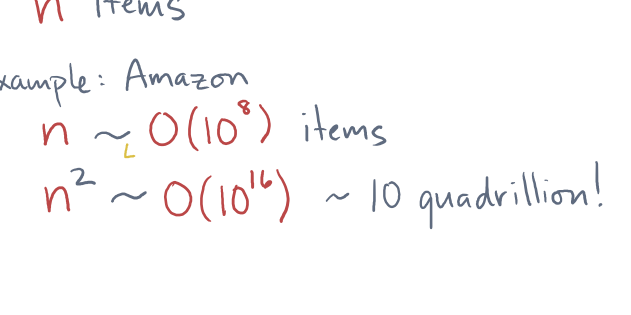 n items
xample: Amazon
n ~ O(10⁸) items
n² ~ O(10¹⁶) ~ 10 quadrillion!